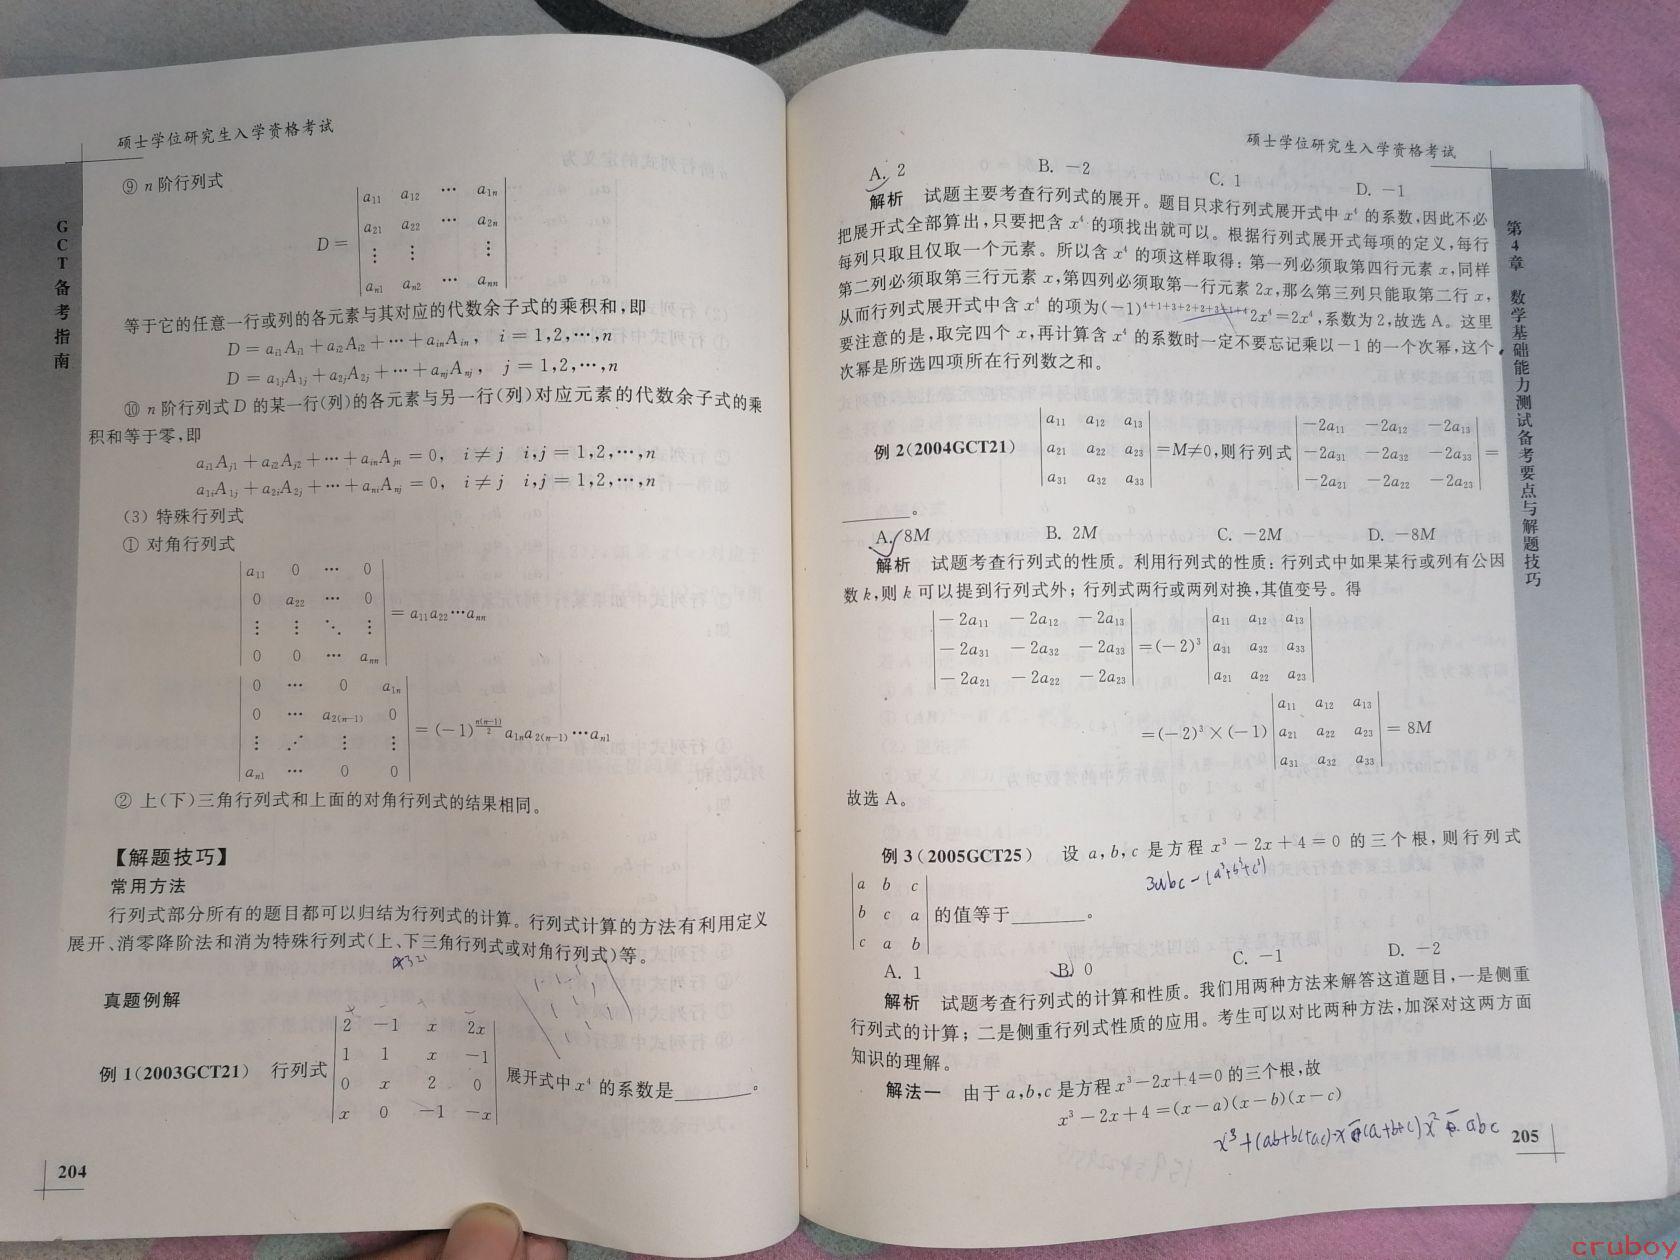 硕士学位研究生入学资格考试
GCT备考指南
⑨ n 阶行列式
D = | a11 a12 ⋯ a1n |
| a21 a22 ⋯ a2n |
| ⋮ ⋮ ⋮ |
| an1 an2 ⋯ ann |
等于它的任意一行或列的各元素与其对应的代数余子式的乘积和,即
D = ai1Ai1 + ai2Ai2 + ⋯ + ainAin, i = 1,2,⋯,n
D = a1jA1j + a2jA2j + ⋯ + anjAnj, j = 1,2,⋯,n
⑩ n 阶行列式 D 的某一行(列)的各元素与另一行(列)对应元素的代数余子式的乘
积和等于零,即
ai1Aj1 + ai2Aj2 + ⋯ + ainAjn = 0, i ≠ j i,j = 1,2,⋯,n
a1iA1j + a2iA2j + ⋯ + aniAnj = 0, i ≠ j i,j = 1,2,⋯,n
(3) 特殊行列式
① 对角行列式
| a11 0 ⋯ 0 |
| 0 a22 ⋯ 0 |
| ⋮ ⋮ ⋱ ⋮ | = a11a22⋯ann
| 0 0 ⋯ ann |
| 0 ⋯ 0 a1n |
| 0 ⋯ a2(n−1) 0 |
| ⋮ ⋰ ⋮ ⋮ | = (−1)^(n(n−1)/2) a1na2(n−1)⋯an1
| an1 ⋯ 0 0 |
② 上(下)三角行列式和上面的对角行列式的结果相同。
【解题技巧】
常用方法
行列式部分所有的题目都可以归结为行列式的计算。行列式计算的方法有利用定义
展开、消零降阶法和消为特殊行列式(上、下三角行列式或对角行列式)等。
真题例解
例 1(2003GCT21) 行列式 | 2 −1 x 2x |
| 1 1 x −1 |
| 0 x 2 0 | 展开式中 x⁴ 的系数是______。
| x 0 −1 −x |
204
硕士学位研究生入学资格考试
第4章 数学基础能力测试备考要点与解题技巧
A. 2 B. −2 C. 1 D. −1
解析 试题主要考查行列式的展开。题目只求行列式展开式中 x⁴ 的系数,因此不必
把展开式全部算出,只要把含 x⁴ 的项找出就可以。根据行列式展开式每项的定义,每行
每列只取且仅取一个元素。所以含 x⁴ 的项这样取得:第一列必须取第四行元素 x,同样
第二列必须取第三行元素 x,第四列必须取第一行元素 2x,那么第三列只能取第二行 x,
从而行列式展开式中含 x⁴ 的项为(−1)^(4+1+3+2+2+3+1+4)2x⁴=2x⁴,系数为 2,故选 A。这里
要注意的是,取完四个 x,再计算含 x⁴ 的系数时一定不要忘记乘以−1 的一个次幂,这个
次幂是所选四项所在行列数之和。
例 2(2004GCT21) | a11 a12 a13 |
| a21 a22 a23 | =M≠0,则行列式
| a31 a32 a33 |
| −2a11 −2a12 −2a13 |
| −2a31 −2a32 −2a33 | =
| −2a21 −2a22 −2a23 |
______。
A. 8M B. 2M C. −2M D. −8M
解析 试题考查行列式的性质。利用行列式的性质:行列式中如果某行或列有公因
数 k,则 k 可以提到行列式外;行列式两行或两列对换,其值变号。得
| −2a11 −2a12 −2a13 | | a11 a12 a13 |
| −2a31 −2a32 −2a33 | =(−2)³ | a31 a32 a33 |
| −2a21 −2a22 −2a23 | | a21 a22 a23 |
| a11 a12 a13 |
=(−2)³×(−1) | a21 a22 a23 | = 8M
| a31 a32 a33 |
故选 A。
例 3(2005GCT25) 设 a,b,c 是方程 x³ − 2x + 4 = 0 的三个根,则行列式
3abc − (a³+b³+c³)
| a b c |
| b c a | 的值等于______。
| c a b |
A. 1 B. 0 C. −1 D. −2
解析 试题考查行列式的计算和性质。我们用两种方法来解答这道题目,一是侧重
行列式的计算;二是侧重行列式性质的应用。考生可以对比两种方法,加深对这两方面
知识的理解。
解法一 由于 a,b,c 是方程 x³−2x+4=0 的三个根,故
x³ − 2x + 4 = (x − a)(x − b)(x − c)
x³+(ab+bc+ac)x−(a+b+c)x²−abc
205
cruboy